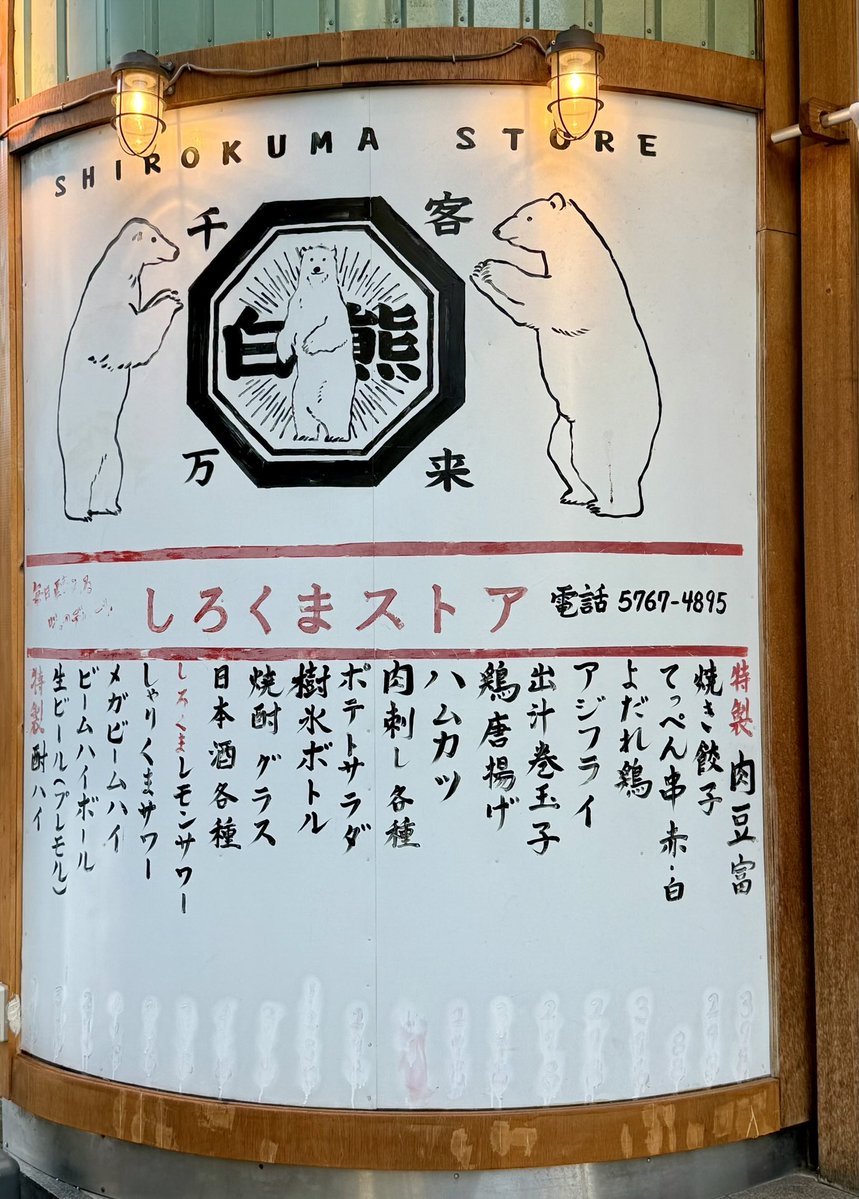 SHIROKUMA STORE
千客万来
白熊
しろくまストア
電話 5767-4895
特製 肉豆富
焼き餃子
てっぺん串 赤・白
よだれ鶏
アジフライ
出汁巻玉子
鶏唐揚げ
ハムカツ
肉刺し各種
ポテトサラダ
樹氷ボトル
焼酎グラス
日本酒各種
しろくまレモンサワー
しゃりくまサワー
メガビームハイ
ビームハイボール
生ビール(プレモル)
特製酎ハイ